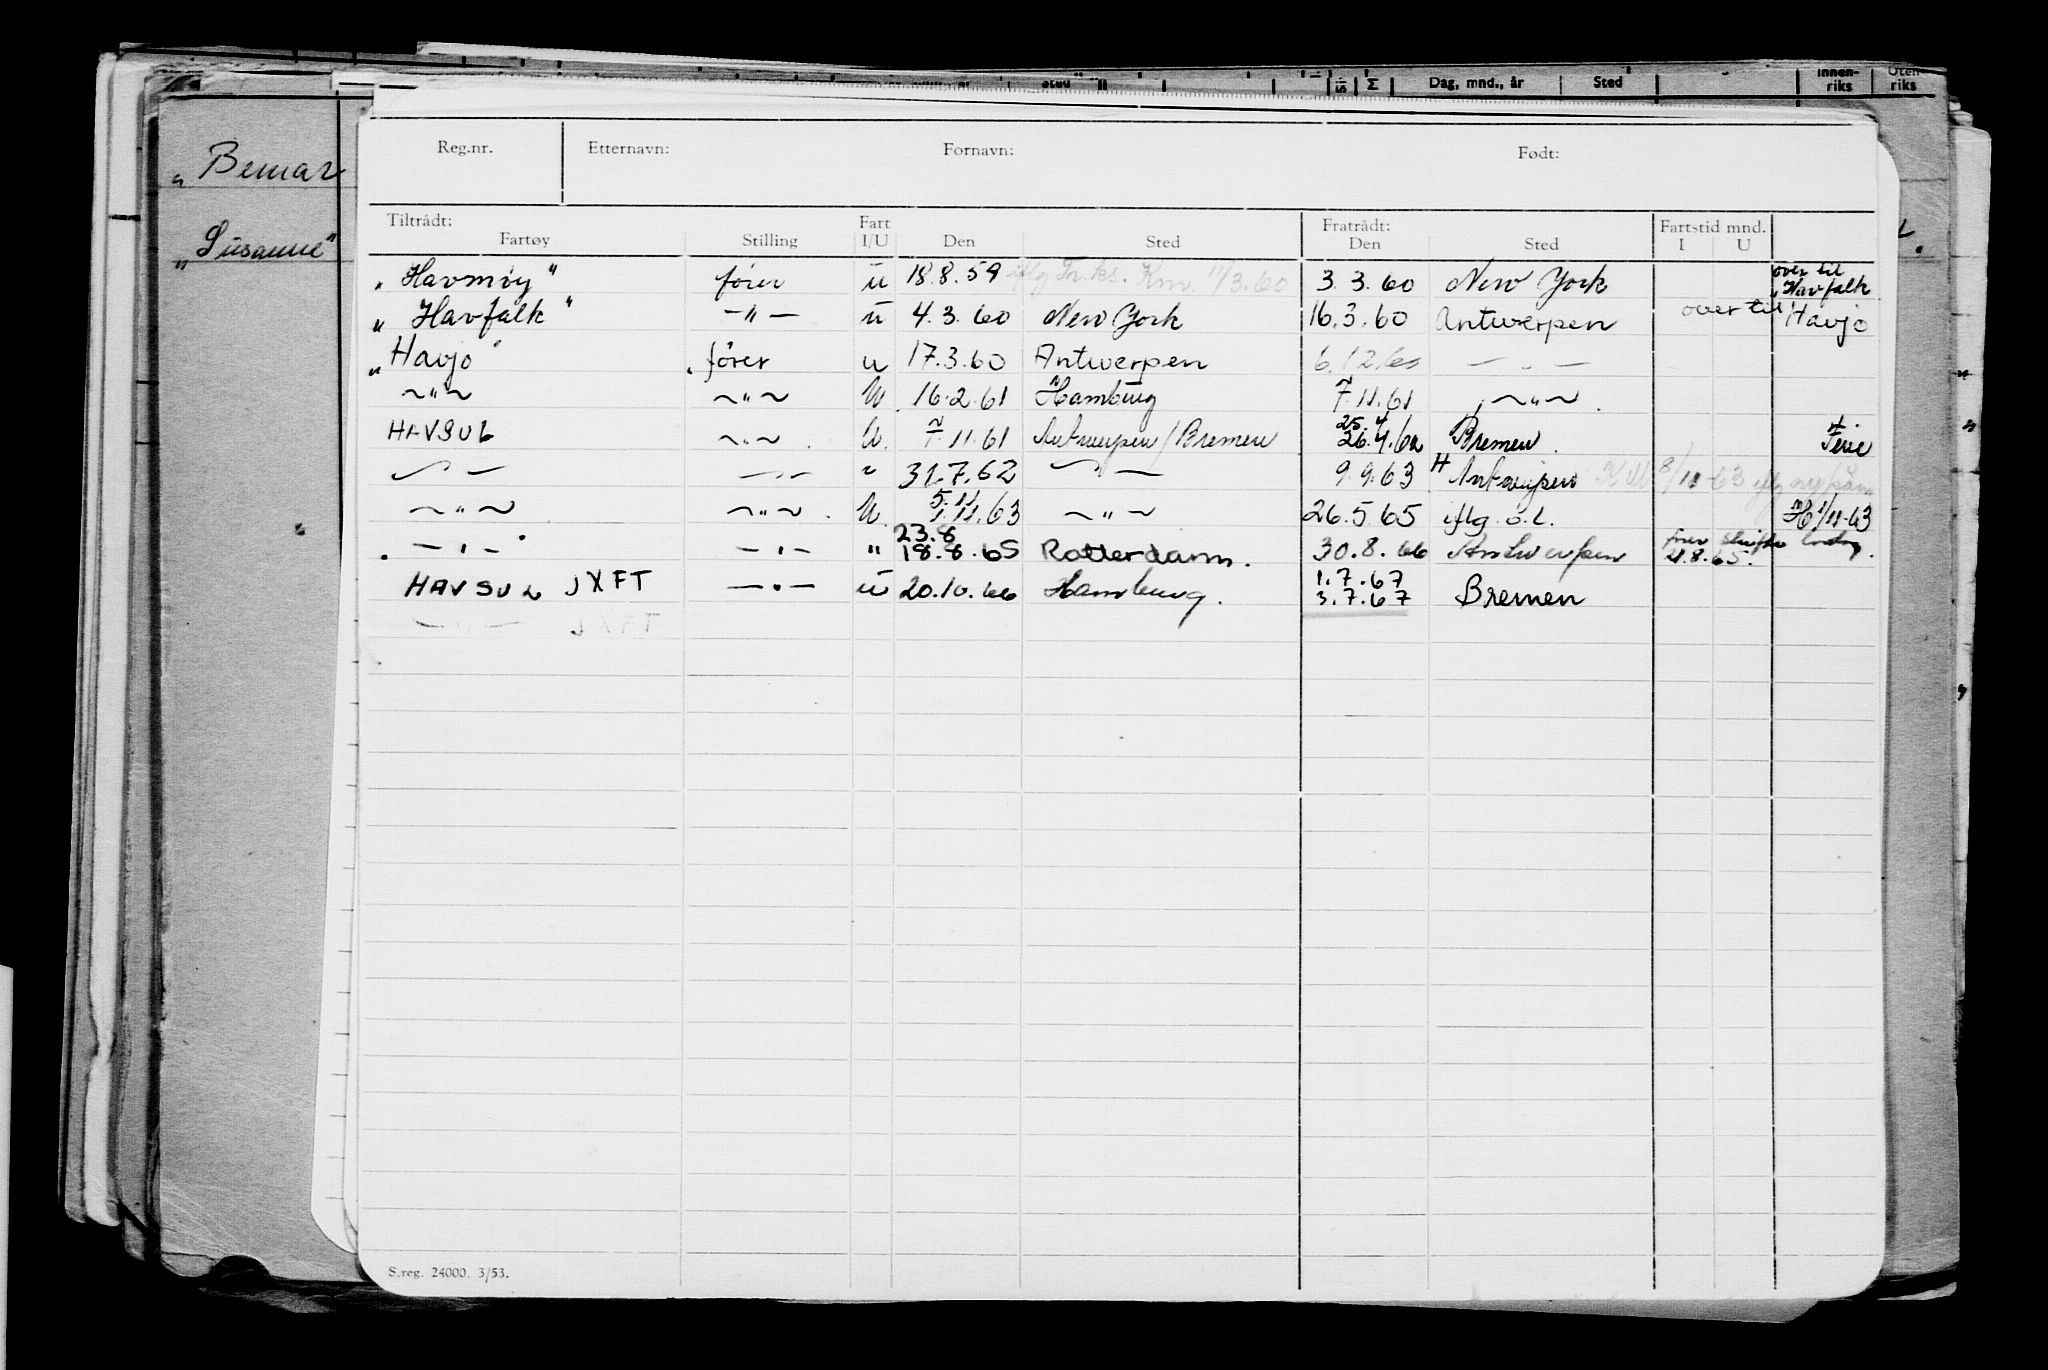 Dag, mnd., år Sted riks riks
"Bemar
"Susanne"
Reg.nr. Etternavn: Fornavn: Født:
Tiltrådt: Fart Fratrådt: Fartstid mnd.
Fartøy Stilling I/U Den Sted Den Sted I U
"Havmøy" fører u 18.8.59 iflg Tr.ks. Km. 11/3.60 3.3.60 New York over til "Havfalk
"Havfalk" —"— u 4.3.60 New York 16.3.60 Antwerpen over til Havjo
"Havjo" fører u 17.3.60 Antwerpen 6.12.60 — " —
~"~ ~"~ U. 16.2.61 Hamburg 7.11.61 ~"~
HAVSUL ~"~ U. 7.11.61 Antwerpen/Bremen 25.4 26.4.62 Bremen Ferie
31.7.62 9.9.63 Antwerpen 8/11-63
5.11
~"~ ~"~ U. 1.11.63 ~"~ 26.5.65 iflg. s.l. 1/11-63
23.8
—"— —"— " 18.8.65 Rotterdam. 30.8.66 Antwerpen 21.8.65.
1.7.67
HAVSUL JXFT —"— u 20.10.66 Hamburg. 3.7.67 Bremen
—"— JXFT
S.reg. 24000. 3/53.